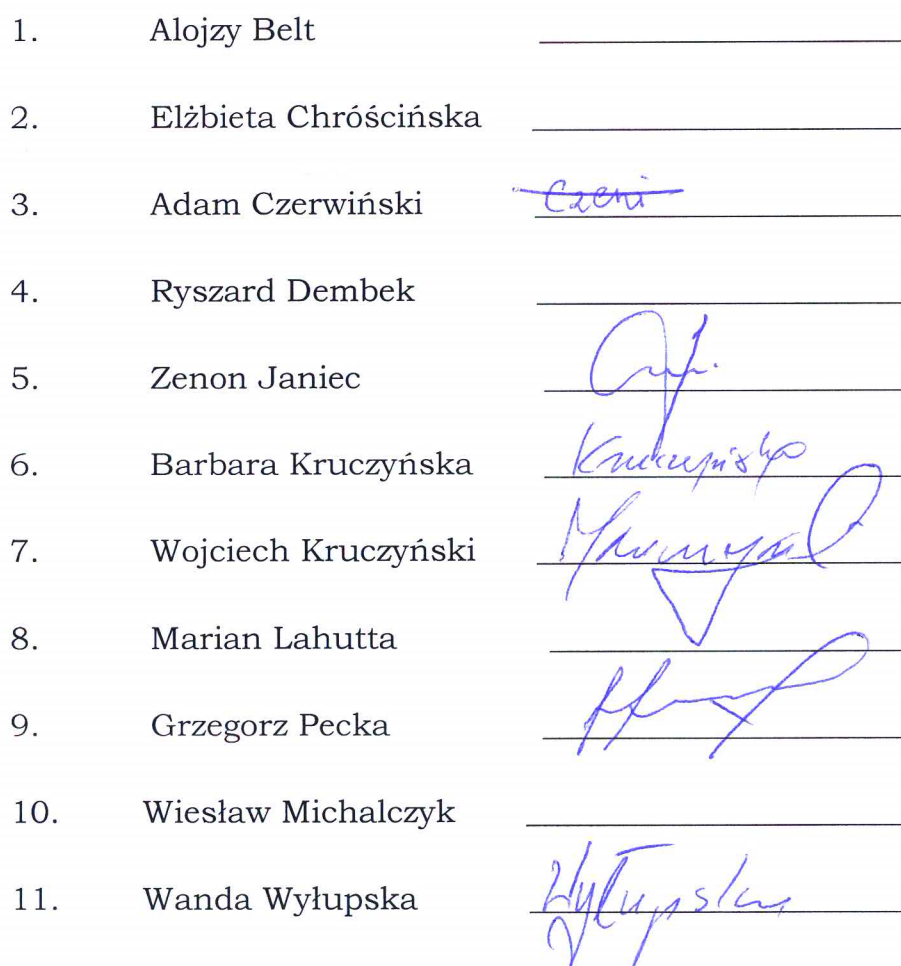 1. Alojzy Belt
2. Elżbieta Chróścińska
3. Adam Czerwiński Czerwi
4. Ryszard Dembek
5. Zenon Janiec
6. Barbara Kruczyńska Kruczyńska
7. Wojciech Kruczyński
8. Marian Lahutta
9. Grzegorz Pecka
10. Wiesław Michalczyk
11. Wanda Wyłupska Wyłupska